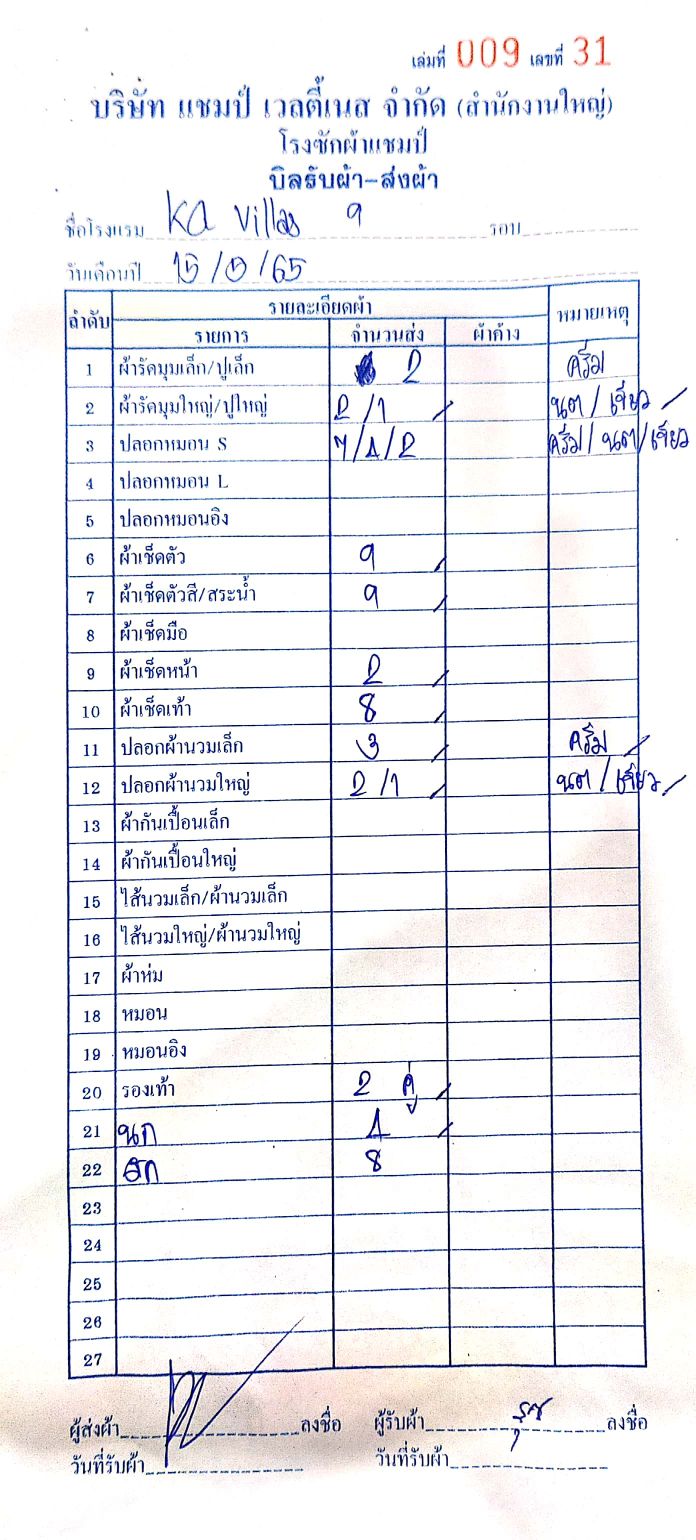 เล่มที่ 009 เลขที่ 31
บริษัท แชมป์ เวลตี้เนส จำกัด (สำนักงานใหญ่)
โรงซักผ้าแชมป์
บิลรับผ้า-ส่งผ้า
ชื่อโรงแรม Ka Villas 9 รอบ
วันเดือนปี /65
ลำดับ รายละเอียดผ้า หมายเหตุ
รายการ จำนวนส่ง ผ้าค้าง
1 ผ้ารัดมุมเล็ก/ปูเล็ก 2 ครีม
2 ผ้ารัดมุมใหญ่/ปูใหญ่ 2/1 นต/เขียว
3 ปลอกหมอน S 7/4/2 ครีม/นต/เขียว
4 ปลอกหมอน L
5 ปลอกหมอนอิง
6 ผ้าเช็ดตัว 9
7 ผ้าเช็ดตัวสี/สระน้ำ 9
8 ผ้าเช็ดมือ
9 ผ้าเช็ดหน้า 2
10 ผ้าเช็ดเท้า 8
11 ปลอกผ้านวมเล็ก 3 ครีม
12 ปลอกผ้านวมใหญ่ 2/1 นต/เขียว
13 ผ้ากันเปื้อนเล็ก
14 ผ้ากันเปื้อนใหญ่
15 ไส้นวมเล็ก/ผ้านวมเล็ก
16 ไส้นวมใหญ่/ผ้านวมใหญ่
17 ผ้าห่ม
18 หมอน
19 หมอนอิง
20 รองเท้า 2 คู่
21 นก 4
22 8
23
24
25
26
27
ผู้ส่งผ้า ลงชื่อ ผู้รับผ้า ลงชื่อ
วันที่รับผ้า วันที่รับผ้า